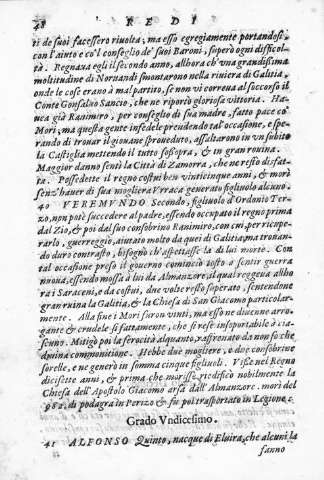 48 RE DI
ti de suoi facessero riuolta; ma esso egregiamente portandosi,
con l'aiuto e co'l conseglio de' suoi Baroni, superò ogni difficol
tà. Regnaua egli il secondo anno, allhora ch'vna grandissima
moltitudine di Noruandi smontarono nella riuiera di Galitia,
onde le cose erano à mal partito, se non vi correua al soccorso il
Conte Gonsaluo Sancio, che ne riportò gloriosa vittoria. Ha-
ueua già Ranimiro, per conseglio di sua madre, fatto pace co'
Mori; ma questa gente infedele prendendo tal'occasione, e spe
rando di trouar il giouane sproueduto, assaltarono in vn subito
la Castiglia mettendo il tutto sosopra, & in gran rouina.
Maggior danno sentì la Città di Zamorra, che ne restò disfat-
ta. Possedette il regno costui ben vinticinque anni, & morì
senz'hauer di sua mogliera Vrraca generato figliuolo alcuno.
40 VEREMVNDO Secondo, figliuolo d'Ordonio Ter-
zo, non potè succedere al padre, essendo occupato il regno prima
dal Zio, & poi dal suo consobrino Ranimiro, con cui, per ricupe-
rarlo, guerreggiò, aiutato molto da quei di Galitia, ma trouan-
do duro contrasto, bisognò ch'aspettasse la di lui morte. Con
tal occasione preso il gouerno cominciò tosto à sentir guerra
nuoua, essendo mossa à lui da Almanzore, il qual reggeua allho
ra i Saraceni, e da costui, due volte restò superato, sentendone
gran ruina la Galitia, & la Chiesa di San Giacomo particolar-
mente. Alla fine i Mori furon vinti, ma esso ne diuenne arro-
gante & crudele sì fattamente, che si rese insoportabile à cia-
scuno. Mitigò poi la ferocità alquanto, raffrenato da non so che
diuina commonitione. Hebbe due mogliere, e due consobrine
sorelle, e ne generò in somma cinque figliuoli. Visse nel Regno
dicisette anni, & prima che morisse riedificò nobilmente la
Chiesa dell'Apostolo Giacomo arsa dall'Almanzore. morì del
982. di podagra in Perizo & fu poi trasportato in Legione.
Grado Vndicesimo.
41 ALFONSO Quinto, nacque di Eluira, che alcuni la
fanno